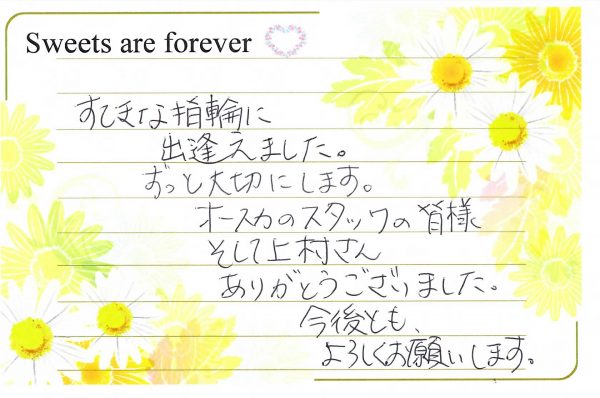 Sweets are forever
すてきな指輪に
出逢えました。
ずっと大切にします。
オースカのスタッフの皆様
そして上村さん
ありがとうございました。
今後とも、
よろしくお願いします。